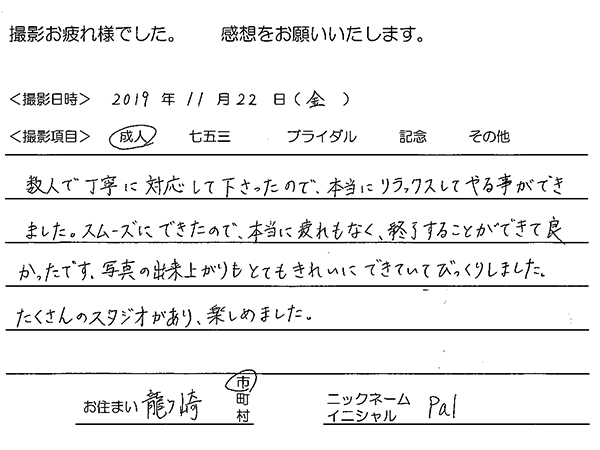 撮影お疲れ様でした。 感想をお願いいたします。
＜撮影日時＞ 2019 年 11 月 22 日（金 ）
＜撮影項目＞ 成人 七五三 ブライダル 記念 その他
数人で丁寧に対応して下さったので、本当にリラックスしてやる事ができ
ました。スムーズにできたので、本当に疲れもなく、終了することができて良
かったです。写真の出来上がりもとてもきれいにできていてびっくりしました。
たくさんのスタジオがあり、楽しめました。
お住まい 龍ヶ崎 市町村 ニックネーム イニシャル Pal